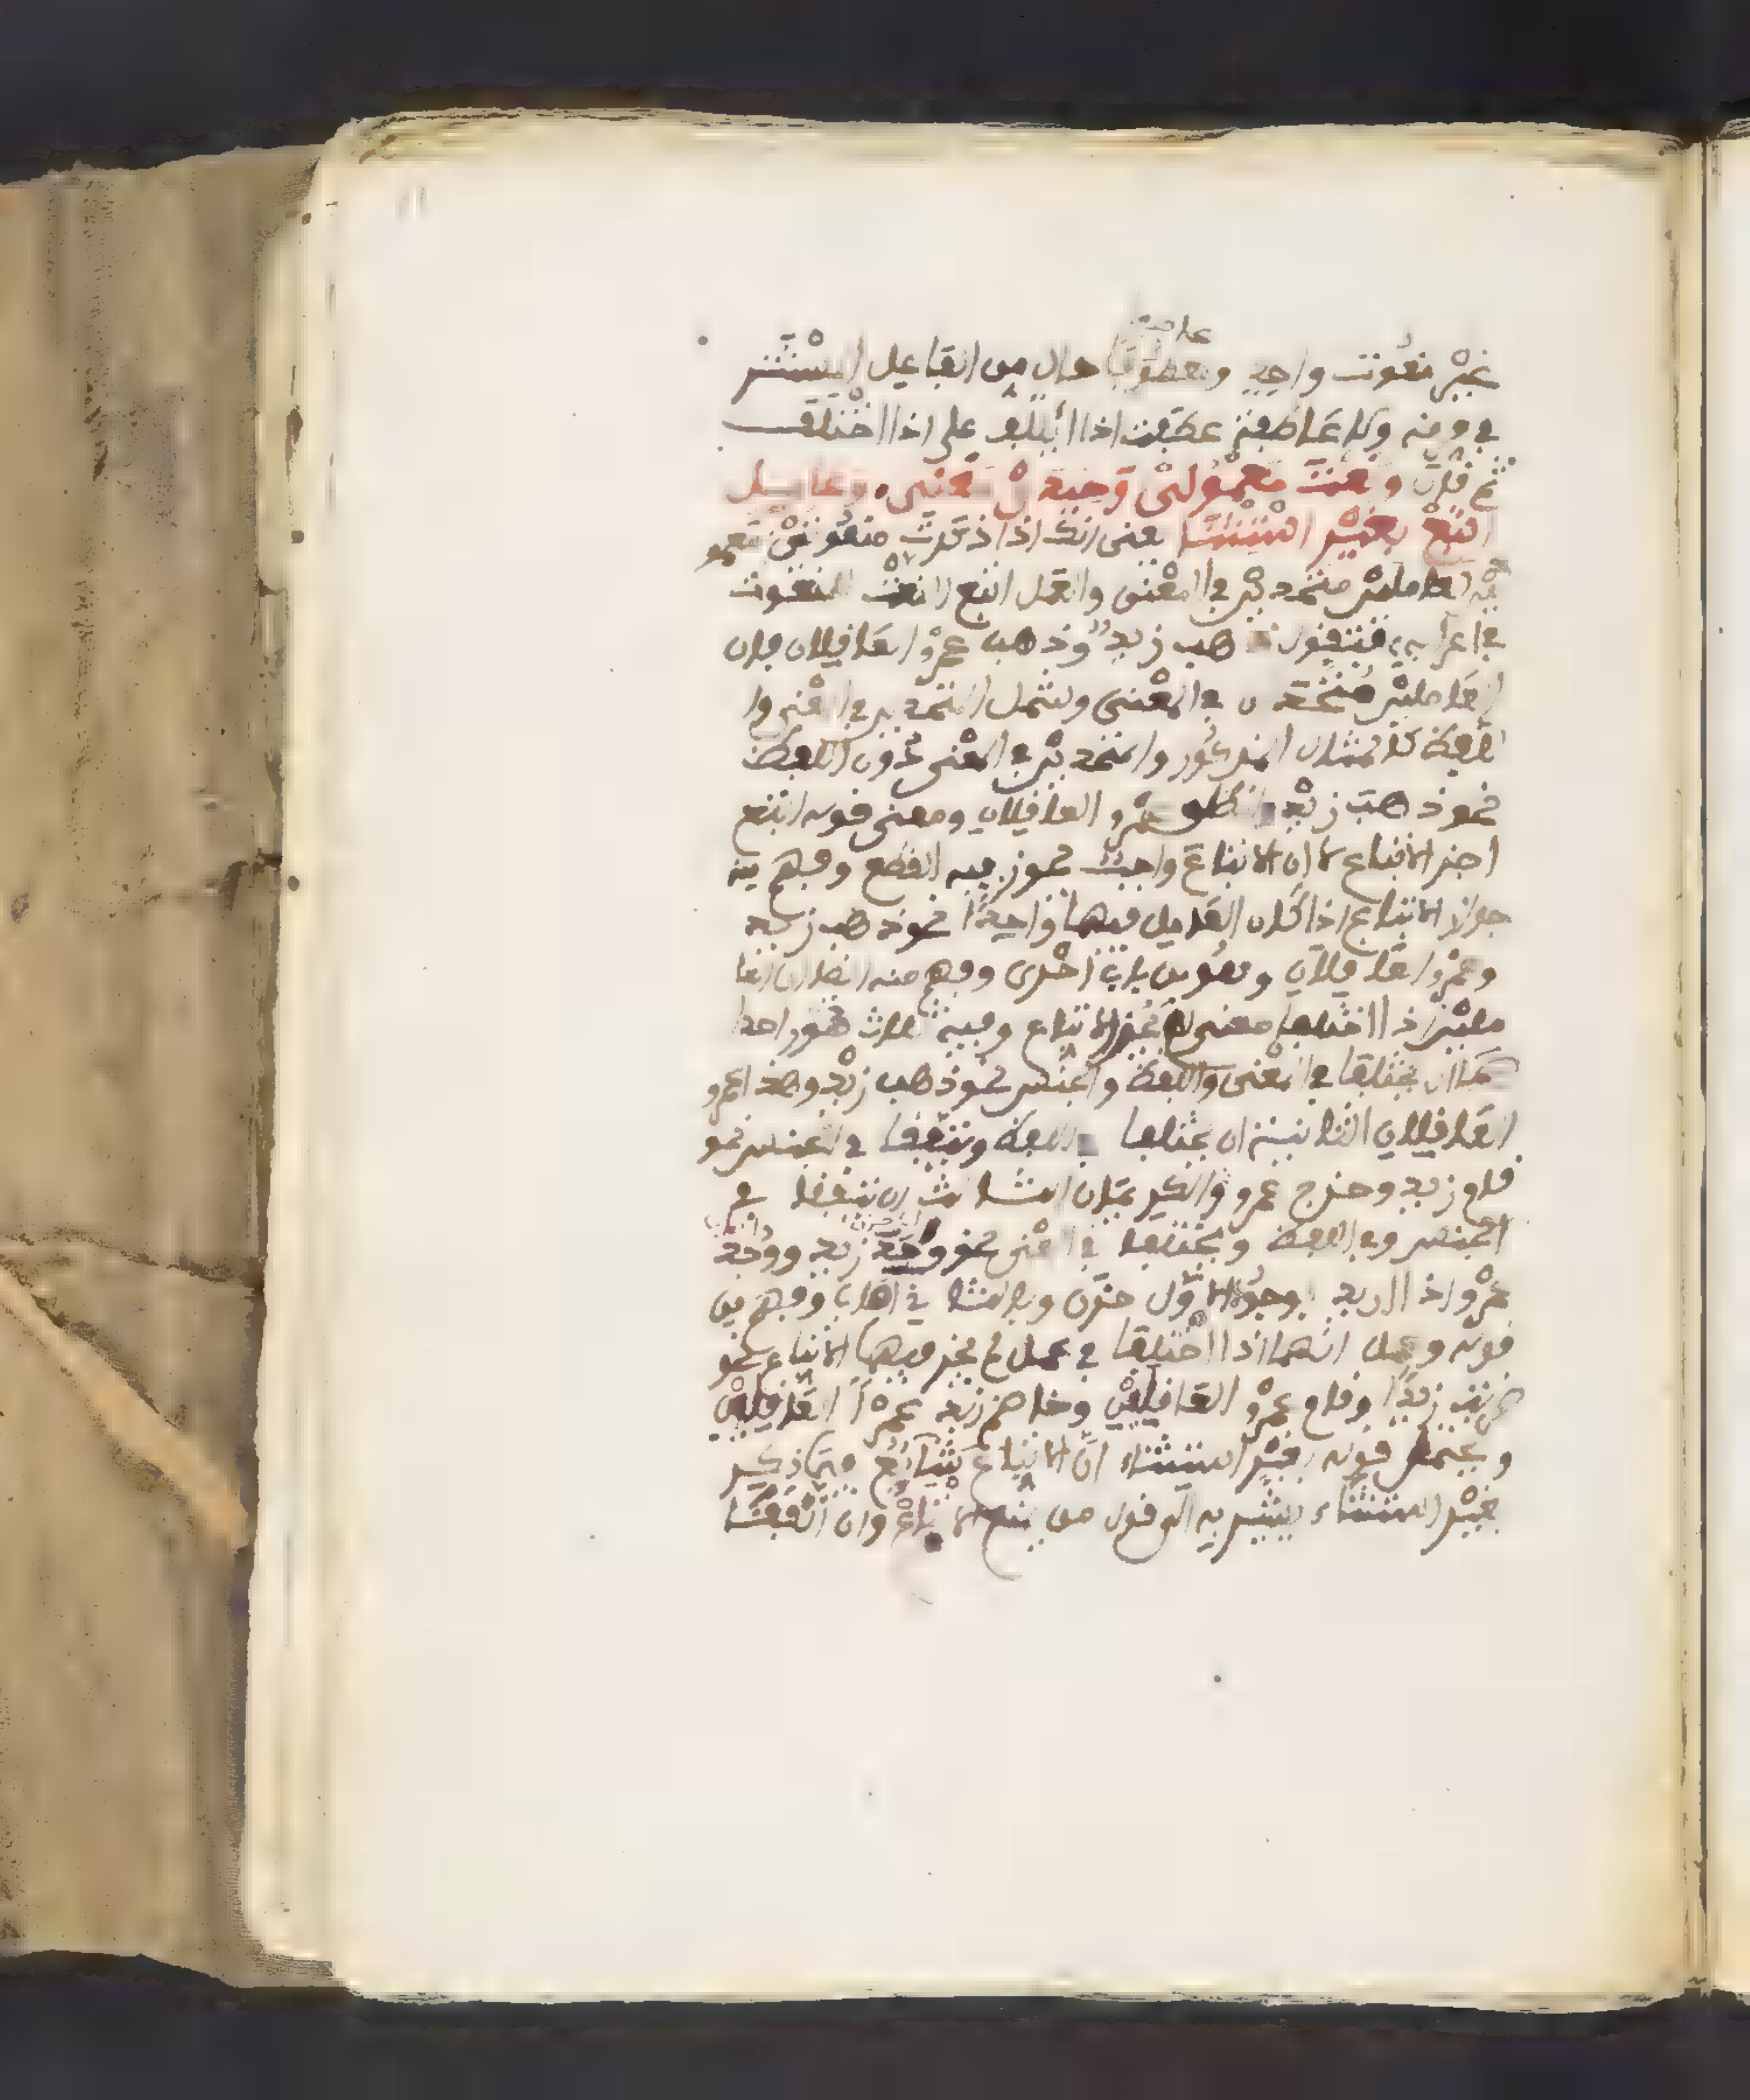 غير منعوت واحد وعاطفا حال من الفاعل المستتر
في فرقه ولا عاطفة عطفت اذا ائتلف على اذا اختلف
ثم قال ونعت معمولي وحيدي معنى وعمل
اتبع بغير استثنا يعني انك اذا ذكرت منعوتين معمو
العاملين متحدين في المعنى والعمل اتبع النعت المنعوت
في اعرابه فتقول ذهب زيد وذهب عمرو العاقلان فان
العاملين متحدان في المعنى ويشمل المتحدين في المعنى وا
للفظ كالمثال المذكور والمتحدين في المعنى دون اللفظ
نحو ذهب زيد وانطلق عمرو العاقلان ومعنى قوله اتبع
اجز الاتباع لا ان الاتباع واجب يجوز فيه القطع وفهم منه
جواز الاتباع اذا كان العامل فيهما واحدا نحو ذهب زيد
وعمرو العاقلان وهو من باب احرى وفهم منه ايضا ان العا
ملين اذا اختلفا معنى لم يجز الاتباع وفيه ثلاث صور احدا
ان يختلفا في المعنى واللفظ والجنس نحو ذهب زيد وهذا عمرو
العاقلان الثانية ان يختلفا في اللفظ ويتفقا في الجنس نحو
قام زيد وخرج عمرو الثالث ان يتفقا في
الجنس وفي اللفظ ويختلفا في المعنى نحو وجد زيد ووجد
عمرو اذا اريد بوجد الاول حزن وبالثاني اصاب وفهم من
قوله وعمل انهما اذا اختلفا في عمل لم يجز فيهما الاتباع نحو
ضربت زيدا وقام عمرو العاقلين وخاصم زيد عمرا العاقلين
ويحتمل قوله بغير استثناء ان الاتباع شائع فيما ذكر
بغير استثناء يشير به الى قول من يمنع الاتباع وان اتفقا